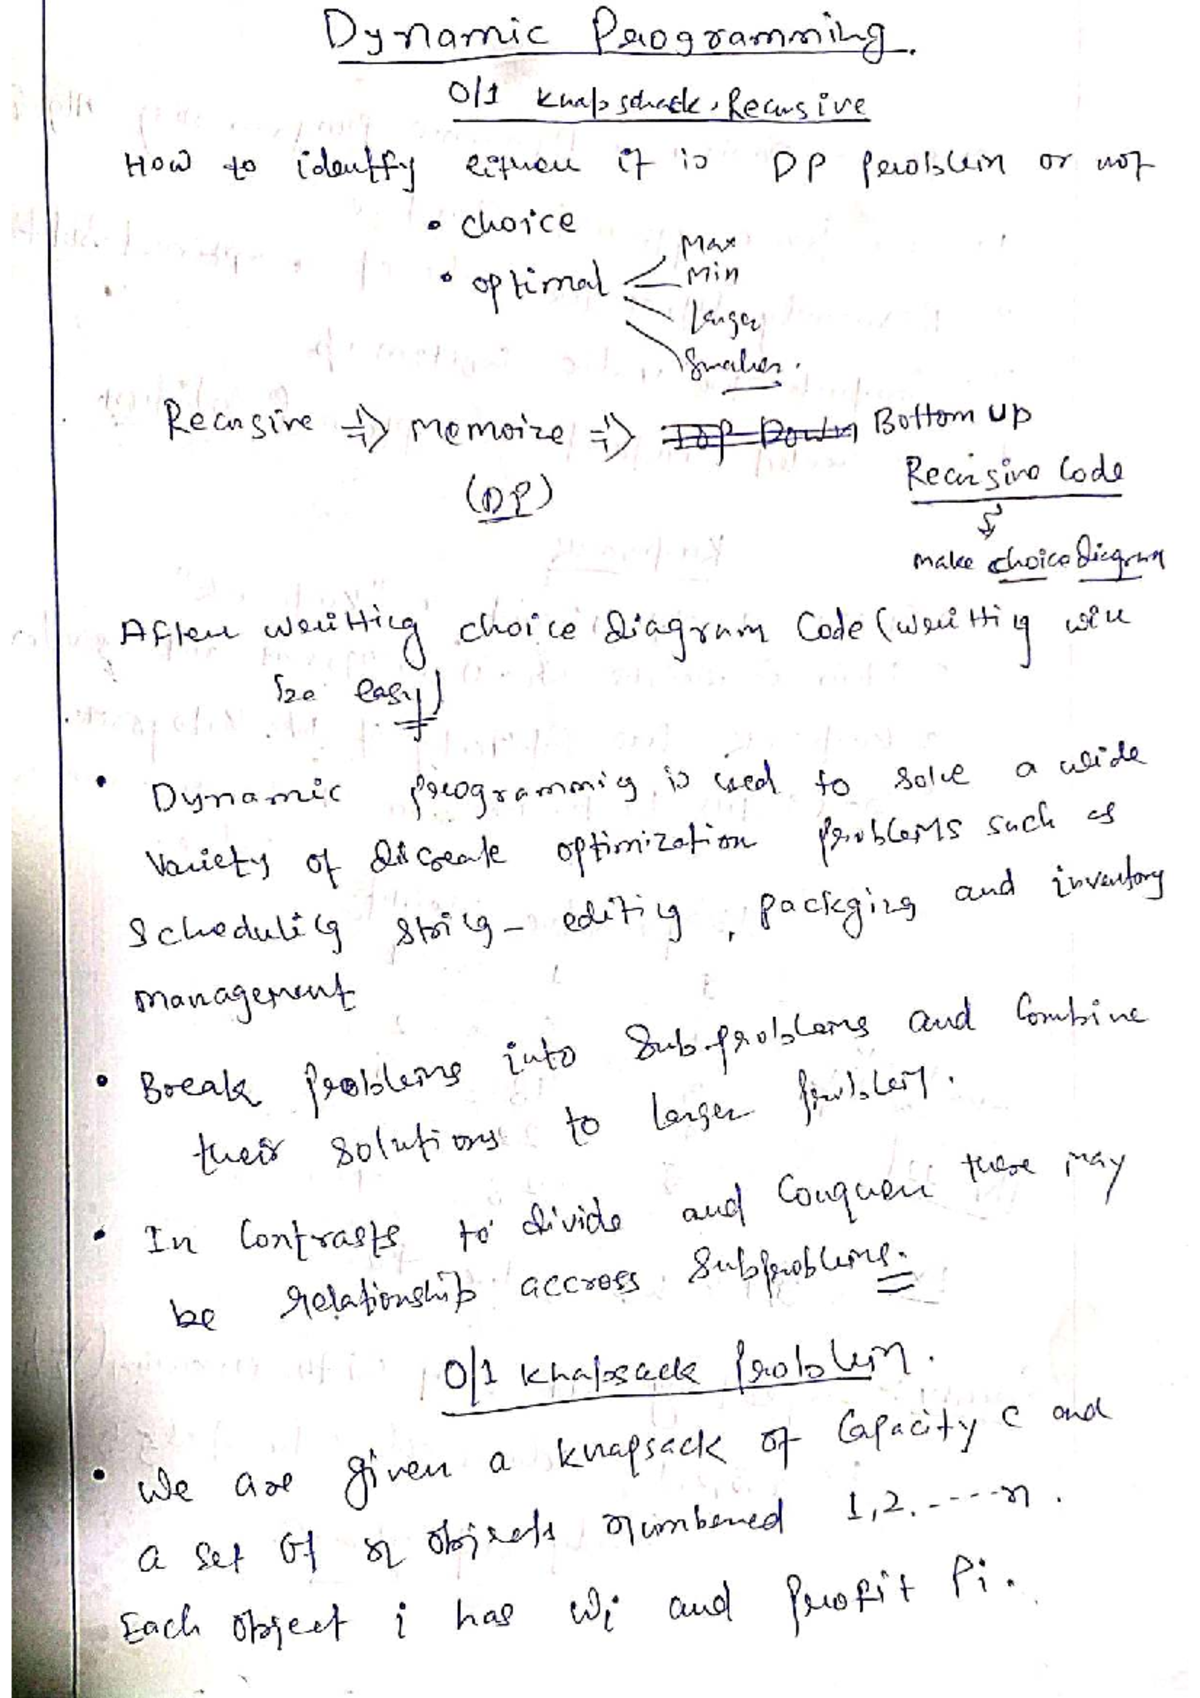 Dynamic Programming.
0/1 Knapschack, Recursive
How to identfy eithere it is DP problem or not
• choice
• optimal
Max
Min
Larger
Smaller.
Recursive => Memoize => Top Down Bottom up
(DP)
Recursive Code
make choice diagram
After writting choice diagram Code (writting will
be easy)
• Dynamic programming is used to solve a wide
variety of discreate optimization problems such as
scheduling string - editing, packging and inventory
management
• Break problems into Subproblems and Combine
their solutions to larger problem.
• In Contrasts to divide and Conquer there may
be relationship accross subproblems.
0/1 Khapsack problem.
• We are given a knapsack of Capacity c and
a set of n objects numbered 1,2.----n.
Each object i has Wi and profit Pi.